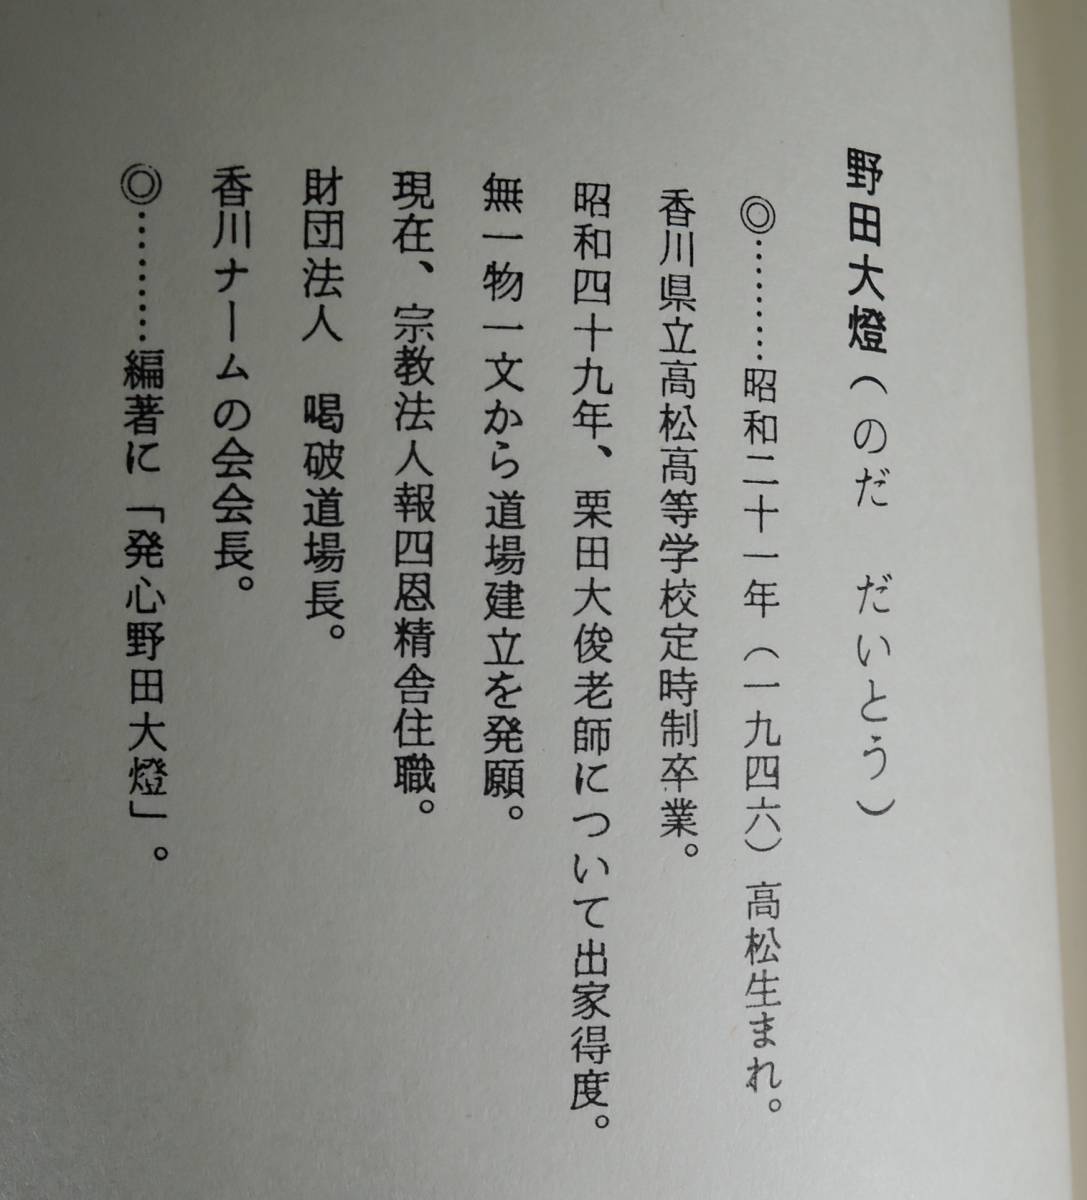 野田大燈（のだ　だいとう）
◎………昭和二十一年（一九四六）高松生まれ。
香川県立高松高等学校定時制卒業。
昭和四十九年、栗田大俊老師について出家得度。
無一物一文から道場建立を発願。
現在、宗教法人報四恩精舎住職。
財団法人　喝破道場長。
香川ナームの会会長。
◎………編著に「発心野田大燈」。